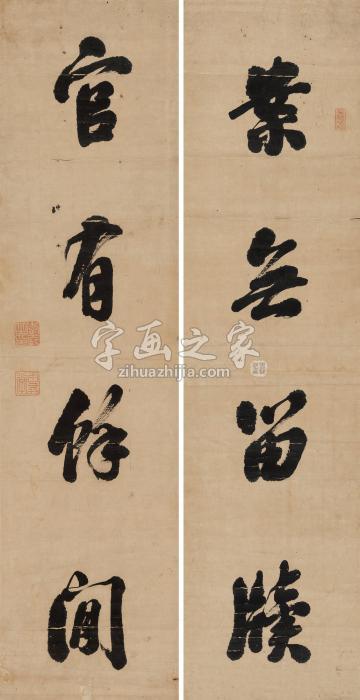 案無留牘
官有餘閒
字画之家
zihuazhijia.com